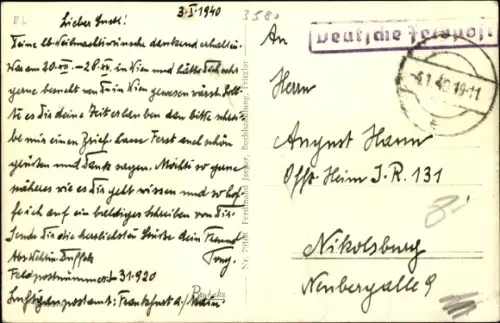 3.I.1940
3580
Lieber Gustl!
Deine lb. Weihnachtswünsche dankend erhalten.
War am 20.XII. – 28.XII. in Wien und hätte Dich sehr
gerne besucht wenn Du in Wien gewesen wärst. Soll-
te es Dir deine Zeit erlauben dan bitte schrei-
be mir einen Brief. lasse Ferst auch schön
grüßen und Danke sagen. Möchte so gerne
näheres wie es Dir geht wissen und so hof-
fe ich auf ein baldiges schreiben von Dir.
Sende Dir die herzlichsten Grüße dein Freund
Abs. Wilhelm
Feldpostnummer: 31.920
Luftgaupostamt: Frankfurt a/Main
Nr. 29108 Ferdinand Jacker, Buchhandlung, Fritzlar
An
Deutsche Feldpost
4.1.40.18-11
Herrn
August Hann
Offz. Heim I.R. 131
Nikolsburg
Neubergalle 9